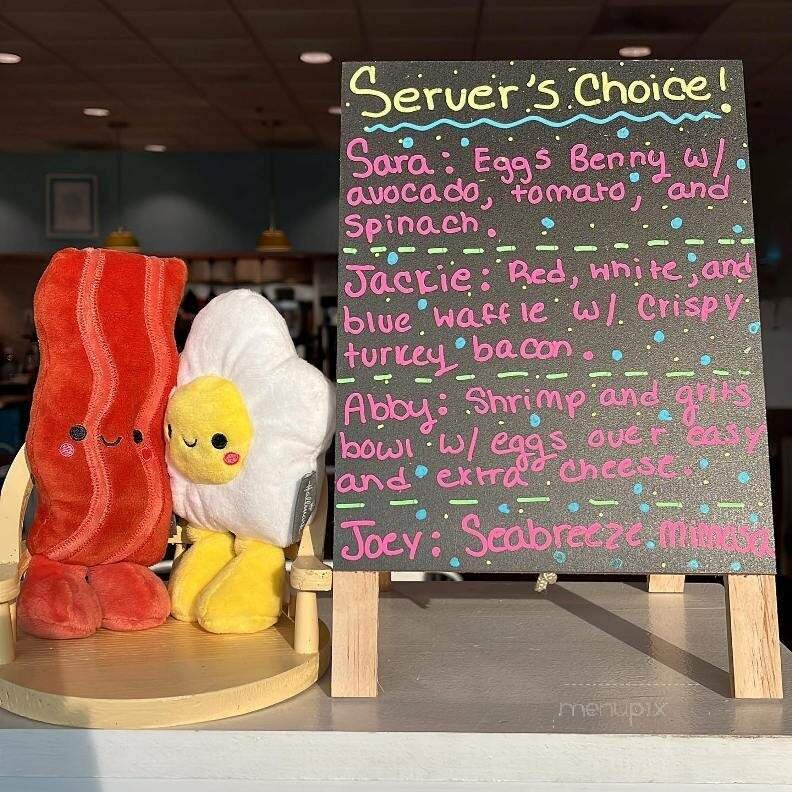 Server's Choice!
Sara: Eggs Benny w/
avocado, tomato, and
spinach.
Jackie: Red, white, and
blue waffle w/ Crispy
turkey bacon.
Abby: Shrimp and grits
bowl w/ eggs over easy
and extra cheese.
Joey: Seabreeze Mimosa
menupix